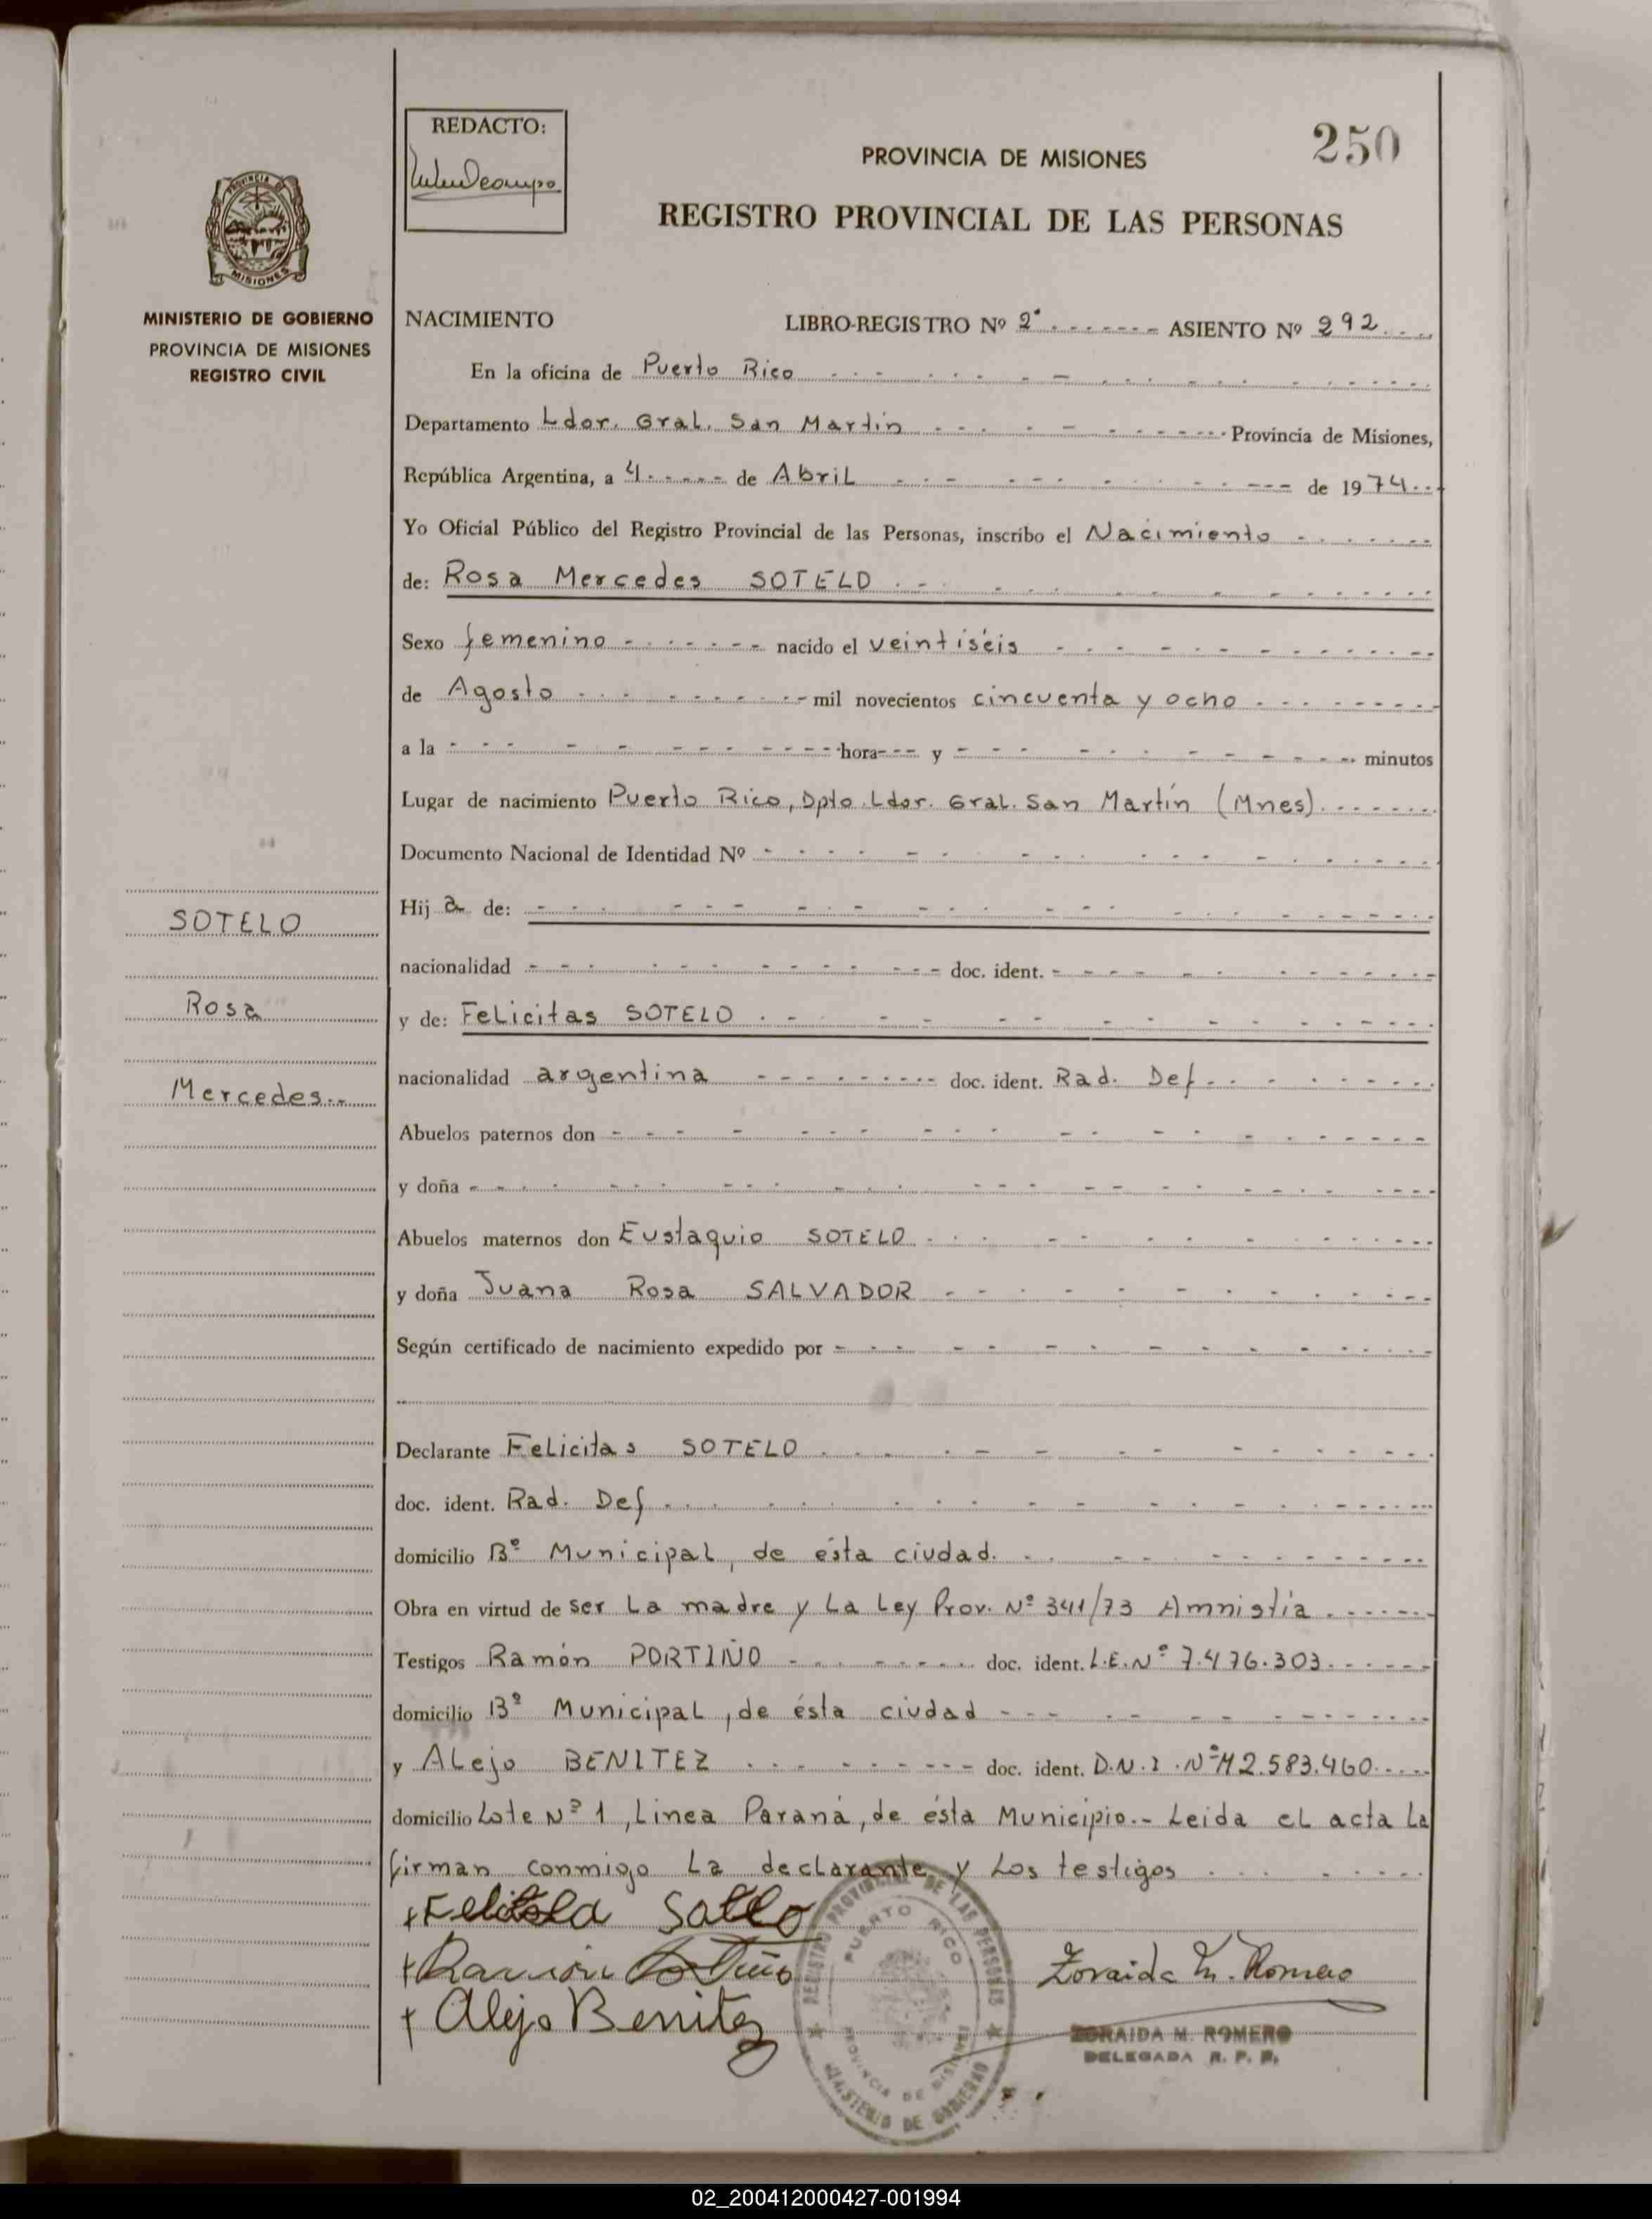 REDACTO:
250
PROVINCIA DE MISIONES
REGISTRO PROVINCIAL DE LAS PERSONAS
PROVINCIA DE
MISIONES
MINISTERIO DE GOBIERNO
PROVINCIA DE MISIONES
REGISTRO CIVIL
NACIMIENTO LIBRO-REGISTRO Nº 2º ASIENTO Nº 292
En la oficina de Puerto Rico
Departamento Ldor. Gral. San Martín Provincia de Misiones,
República Argentina, a 4 de Abril de 1974
Yo Oficial Público del Registro Provincial de las Personas, inscribo el Nacimiento
de: Rosa Mercedes SOTELO
Sexo femenino nacido el veintiséis
de Agosto mil novecientos cincuenta y ocho
a la hora y minutos
Lugar de nacimiento Puerto Rico, Dpto. Ldor. Gral. San Martín (Mnes).
Documento Nacional de Identidad Nº
Hija de:
nacionalidad doc. ident.
y de: Felicitas SOTELO
nacionalidad argentina doc. ident. Rad. Def.
Abuelos paternos don
y doña
Abuelos maternos don Eustaquio SOTELO
y doña Juana Rosa SALVADOR
Según certificado de nacimiento expedido por
Declarante Felicitas SOTELO
doc. ident. Rad. Def.
domicilio Bº Municipal, de ésta ciudad.
Obra en virtud de ser la madre y la Ley Prov. Nº 341/73 Amnistía
Testigos Ramón PORTIÑO doc. ident. L.E. Nº 7.476.303
domicilio Bº Municipal, de ésta ciudad
y Alejo BENITEZ doc. ident. D.N.I. Nº M2.583.460
domicilio Lote Nº 1, Línea Paraná, de ésta Municipio.- Leida el acta la
firman conmigo la declarante y los testigos
Ramón
Alejo Benitez
Zoraida M. Romero
ZORAIDA M. ROMERO
DELEGADA R. P. P.
REGISTRO PROVINCIAL DE LAS PERSONAS
PUERTO RICO
PROVINCIA DE MISIONES
MINISTERIO DE GOBIERNO
SOTELO
Rosa
Mercedes
02_200412000427-001994